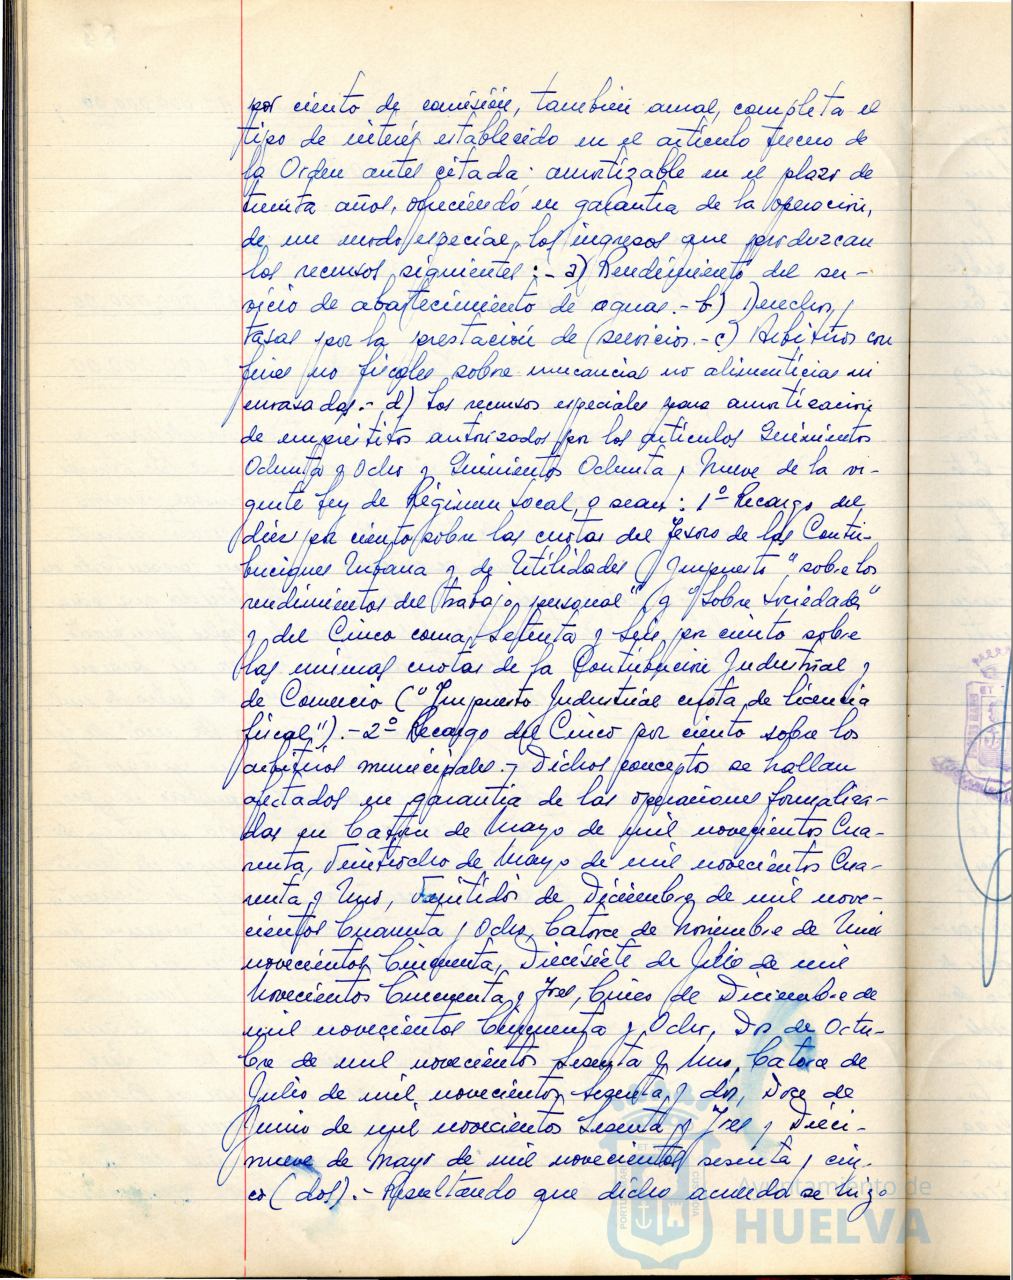 por ciento de comisión, también anual, completa el
tipo de interés establecido en el artículo tercero de
la Orden antes citada: amortizable en el plazo de
treinta años, ofreciendo en garantía de la operación,
de un modo especial, los ingresos que produzcan
los recursos siguientes:- a) Rendimiento del ser-
vicio de abastecimiento de aguas.- b) Derechos y
tasas por la prestación de servicios.- c) Arbitrios con
fines no fiscales sobre mercancias no alimenticias ni
envasadas.- d) Los recursos especiales para amortización
de empréstitos autorizados por los artículos Quinientos
Ochenta y Ocho y Quinientos Ochenta y Nueve de la vi-
gente Ley de Régimen Local, o sean: 1º Recargo del
diez por ciento sobre las cuotas del Tesoro de las Contri-
buciones Urbana y de Utilidades (Impuesto "sobre los
rendimientos del trabajo personal" y "sobre Sociedades"
y del Cinco coma Setenta y Seis por ciento sobre
las mismas cuotas de la Contribución Industrial y
de Comercio ("Impuesto Industrial cuota de licencia
fiscal").- 2º Recargo del Cinco por ciento sobre los
arbitrios municipales.- Dichos conceptos se hallan
afectados en garantía de las operaciones formaliza-
das en Catorce de Mayo de mil novecientos Cua-
renta, Veintiocho de Mayo de mil novecientos Cua-
renta y Uno, Veintidós de Diciembre de mil nove-
cientos Cuarenta y Ocho, Catorce de Noviembre de Mil
novecientos Cincuenta, Diecisiete de Julio de mil
Novecientos Cincuenta y Tres, Cinco de Diciembre de
mil novecientos Cincuenta y Ocho, Dos de Octu-
bre de mil novecientos Sesenta y Uno, Catorce de
Julio de mil novecientos Sesenta y dos, Doce de
Junio de mil novecientos Sesenta y Tres y Dieci-
nueve de Mayo de mil novecientos sesenta y cin-
co (dos).- Resultando que dicho acuerdo se hizo
Ayuntamiento de
HUELVA